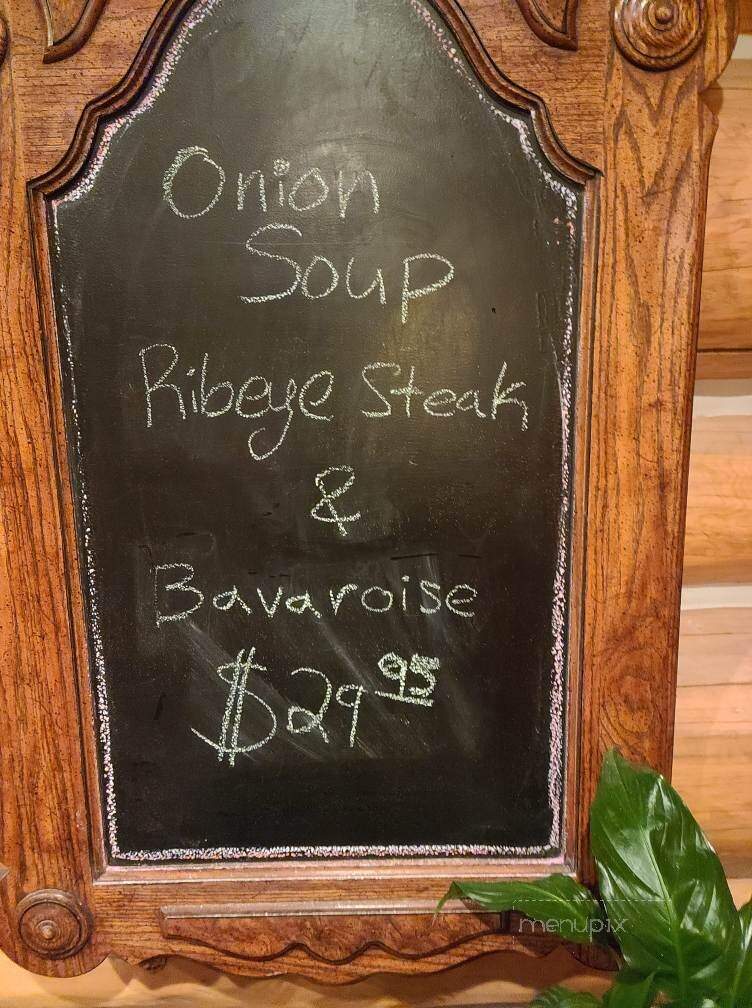 Onion
Soup
Ribeye Steak
&
Bavaroise
$29 95
menupix